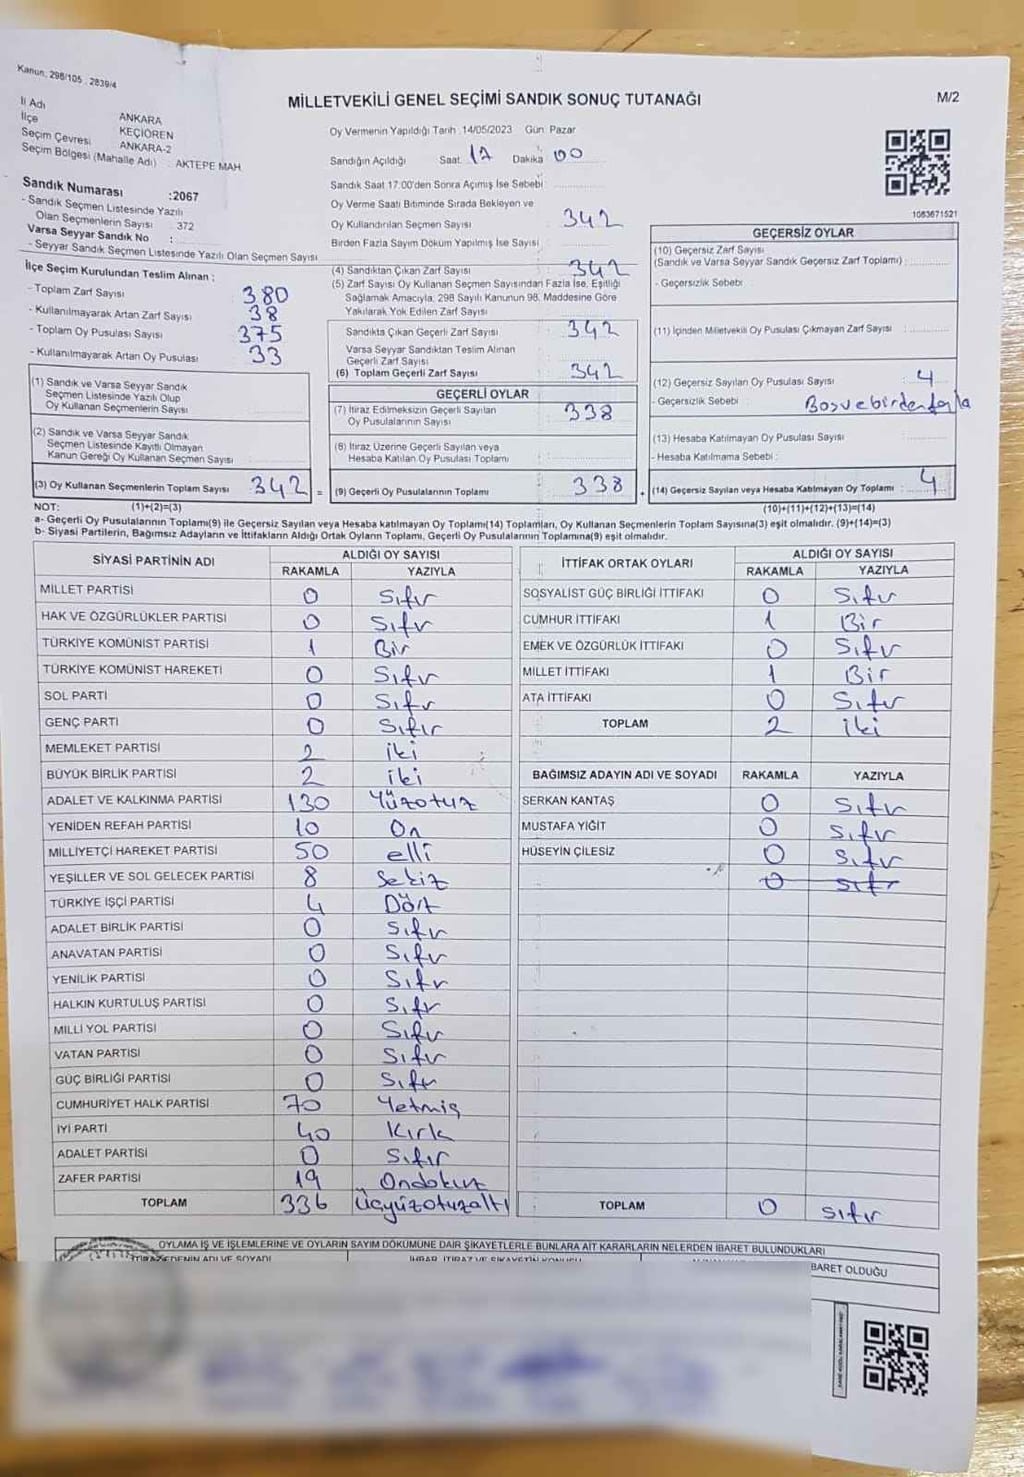 Kanun, 298/105 : 2839/4
MİLLETVEKİLİ GENEL SEÇİMİ SANDIK SONUÇ TUTANAĞI
M/2
İl Adı ANKARA
İlçe KEÇİÖREN
Seçim Çevresi ANKARA-2
Seçim Bölgesi (Mahalle Adı) : AKTEPE MAH
Sandık Numarası :2067
- Sandık Seçmen Listesinde Yazılı
Olan Seçmenlerin Sayısı : 372
Varsa Seyyar Sandık No :
- Seyyar Sandık Seçmen Listesinde Yazılı Olan Seçmen Sayısı
Oy Vermenin Yapıldığı Tarih :14/05/2023 Gün: Pazar
Sandığın Açıldığı Saat: 17 Dakika: 00
Sandık Saat 17:00'den Sonra Açımış İse Sebebi:
Oy Verme Saati Bitiminde Sırada Bekleyen ve
Oy Kullandırılan Seçmen Sayısı : 342
Birden Fazla Sayım Döküm Yapılmış İse Sayısı :
1083671521
İlçe Seçim Kurulundan Teslim Alınan :
- Toplam Zarf Sayısı : 380
- Kullanılmayarak Artan Zarf Sayısı : 38
- Toplam Oy Pusulası Sayısı : 375
- Kullanılmayarak Artan Oy Pusulası : 33
(1) Sandık ve Varsa Seyyar Sandık
Seçmen Listesinde Yazılı Olup
Oy Kullanan Seçmenlerin Sayısı :
(2) Sandık ve Varsa Seyyar Sandık
Seçmen Listesinde Kayıtlı Olmayan
Kanun Gereği Oy Kullanan Seçmen Sayısı :
(3) Oy Kullanan Seçmenlerin Toplam Sayısı : 342 =
(4) Sandıktan Çıkan Zarf Sayısı : 342
(5) Zarf Sayısı Oy Kullanan Seçmen Sayısından Fazla İse, Eşitliği
Sağlamak Amacıyla, 298 Sayılı Kanunun 98. Maddesine Göre
Yakılarak Yok Edilen Zarf Sayısı :
Sandıkta Çıkan Geçerli Zarf Sayısı : 342
Varsa Seyyar Sandıktan Teslim Alınan
Geçerli Zarf Sayısı :
(6) Toplam Geçerli Zarf Sayısı : 342
GEÇERLİ OYLAR
(7) İtiraz Edilmeksizin Geçerli Sayılan
Oy Pusulalarının Sayısı : 338
(8) İtiraz Üzerine Geçerli Sayılan veya
Hesaba Katılan Oy Pusulası Toplamı :
(9) Geçerli Oy Pusulalarının Toplamı : 338 +
GEÇERSİZ OYLAR
(10) Geçersiz Zarf Sayısı
(Sandık ve Varsa Seyyar Sandık Geçersiz Zarf Toplamı) :
- Geçersizlik Sebebi :
(11) İçinden Milletvekili Oy Pusulası Çıkmayan Zarf Sayısı :
(12) Geçersiz Sayılan Oy Pusulası Sayısı : 4
- Geçersizlik Sebebi : Boş ve birden fazla
(13) Hesaba Katılmayan Oy Pusulası Sayısı :
- Hesaba Katılmama Sebebi :
(14) Geçersiz Sayılan veya Hesaba Katılmayan Oy Toplamı : 4
NOT: (1)+(2)=(3) (10)+(11)+(12)+(13)=(14)
a- Geçerli Oy Pusulalarının Toplamı(9) ile Geçersiz Sayılan veya Hesaba katılmayan Oy Toplamı(14) Toplamları, Oy Kullanan Seçmenlerin Toplam Sayısına(3) eşit olmalıdır. (9)+(14)=(3)
b- Siyasi Partilerin, Bağımsız Adayların ve İttifakların Aldığı Ortak Oyların Toplamı, Geçerli Oy Pusulalarının Toplamına(9) eşit olmalıdır.
SİYASİ PARTİNİN ADI ALDIĞI OY SAYISI
RAKAMLA YAZIYLA
MİLLET PARTİSİ 0 Sıfır
HAK VE ÖZGÜRLÜKLER PARTİSİ 0 Sıfır
TÜRKİYE KOMÜNİST PARTİSİ 1 Bir
TÜRKİYE KOMÜNİST HAREKETİ 0 Sıfır
SOL PARTİ 0 Sıfır
GENÇ PARTİ 0 Sıfır
MEMLEKET PARTİSİ 2 iki
BÜYÜK BİRLİK PARTİSİ 2 iki
ADALET VE KALKINMA PARTİSİ 130 Yüzotuz
YENİDEN REFAH PARTİSİ 10 On
MİLLİYETÇİ HAREKET PARTİSİ 50 elli
YEŞİLLER VE SOL GELECEK PARTİSİ 8 Sekiz
TÜRKİYE İŞÇİ PARTİSİ 4 Dört
ADALET BİRLİK PARTİSİ 0 Sıfır
ANAVATAN PARTİSİ 0 Sıfır
YENİLİK PARTİSİ 0 Sıfır
HALKIN KURTULUŞ PARTİSİ 0 Sıfır
MİLLİ YOL PARTİSİ 0 Sıfır
VATAN PARTİSİ 0 Sıfır
GÜÇ BİRLİĞİ PARTİSİ 0 Sıfır
CUMHURİYET HALK PARTİSİ 70 Yetmiş
İYİ PARTİ 40 Kırk
ADALET PARTİSİ 0 Sıfır
ZAFER PARTİSİ 19 Ondokuz
TOPLAM 336 Üçyüzotuzaltı
İTTİFAK ORTAK OYLARI ALDIĞI OY SAYISI
RAKAMLA YAZIYLA
SOSYALİST GÜÇ BİRLİĞİ İTTİFAKI 0 Sıfır
CUMHUR İTTİFAKI 1 Bir
EMEK VE ÖZGÜRLÜK İTTİFAKI 0 Sıfır
MİLLET İTTİFAKI 1 Bir
ATA İTTİFAKI 0 Sıfır
TOPLAM 2 iki
BAĞIMSIZ ADAYIN ADI VE SOYADI RAKAMLA YAZIYLA
SERKAN KANTAŞ 0 Sıfır
MUSTAFA YİĞİT 0 Sıfır
HÜSEYİN ÇİLESİZ 0 Sıfır
0 Sıfır
TOPLAM 0 Sıfır
OYLAMA İŞ VE İŞLEMLERİNE VE OYLARIN SAYIM DÖKÜMÜNE DAİR ŞİKAYETLERLE BUNLARA AİT KARARLARIN NELERDEN İBARET BULUNDUKLARI
BARET OLDUĞU